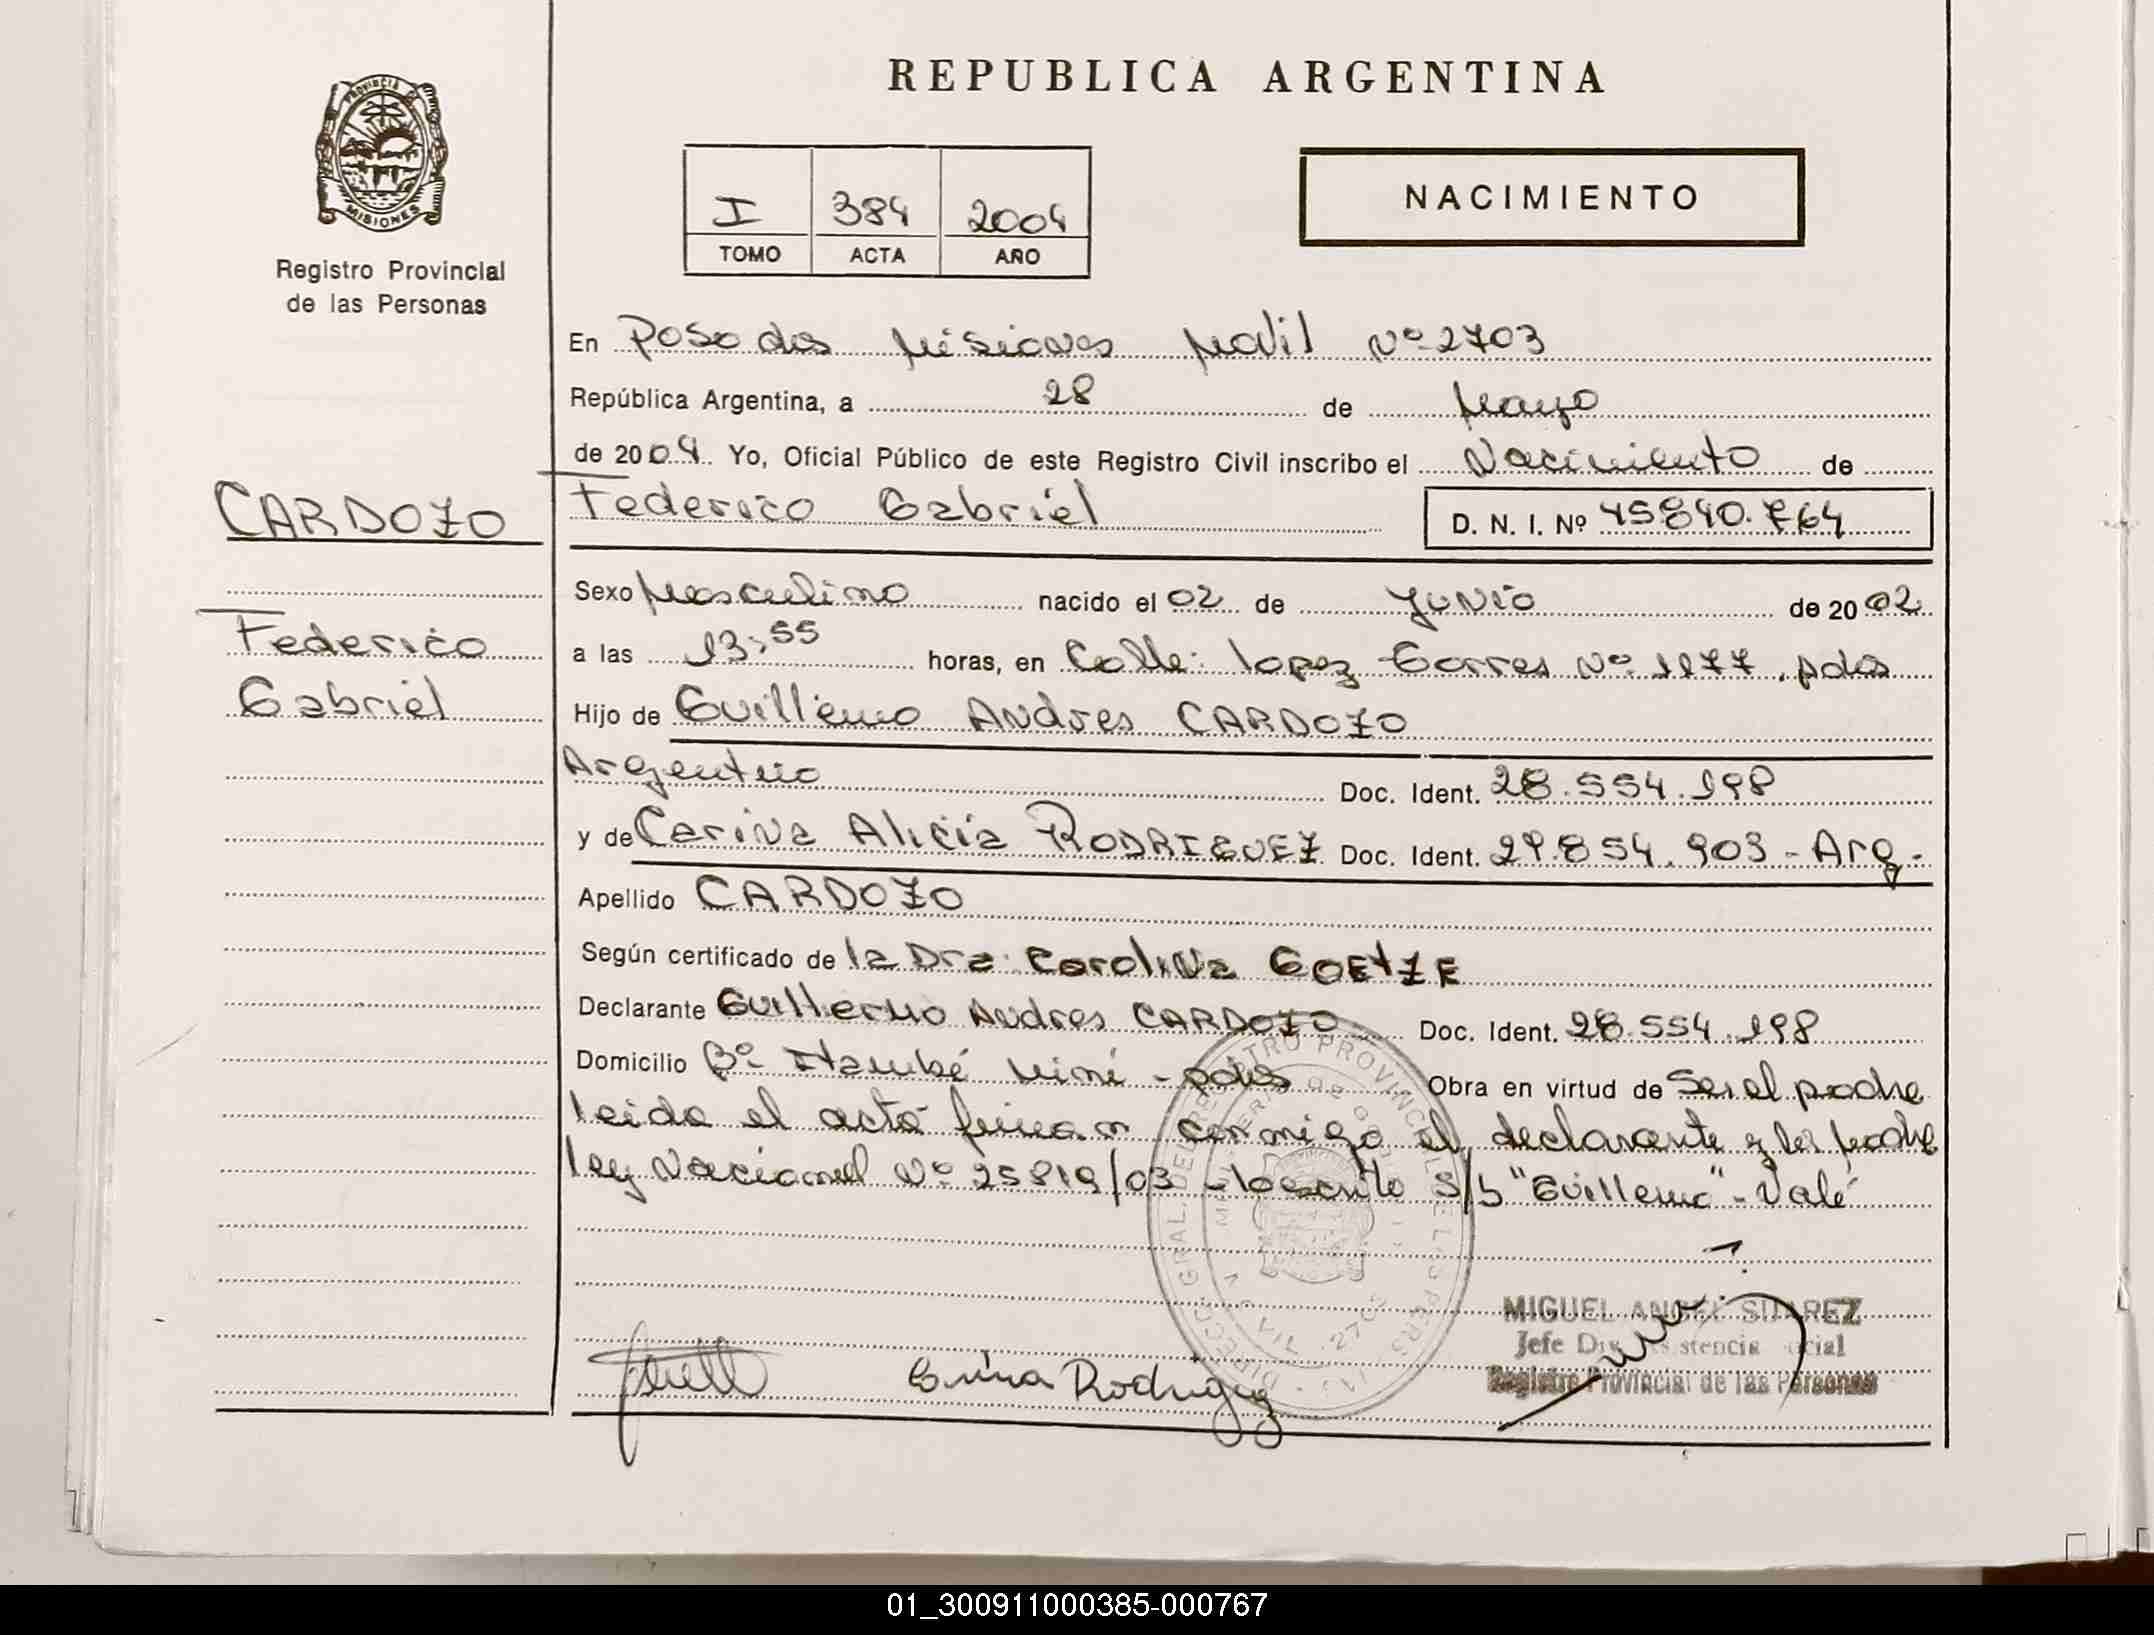 REPUBLICA ARGENTINA
PROVINCIA DE
MISIONES
Registro Provincial
de las Personas
I 384 2004
TOMO ACTA AÑO
NACIMIENTO
En Posadas Misiones Movil Nº 2703
República Argentina, a 28 de Mayo
de 2004. Yo, Oficial Público de este Registro Civil inscribo el Nacimiento de
CARDOZO
Federico Gabriel D. N. I. Nº 45840.764
Sexo Masculino nacido el 02 de Junio de 2002
Federico
Gabriel
a las 13:55 horas, en Calle: Lopez Torres Nº 1177, pdas
Hijo de Guillermo Andres CARDOZO
Argentino Doc. Ident. 28.554.198
y de Carina Alicia RODRIGUEZ Doc. Ident. 29.854.903 - Arg.
Apellido CARDOZO
Según certificado de la Dra: Carolina GOETZE
Declarante Guillermo Andres CARDOZO Doc. Ident. 28.554.198
Domicilio Bº Itaembé Mini - pdas Obra en virtud de Ser el padre
leida el acta firman conmigo el declarante y la madre
ley Nacional Nº 25819/03 - lo escrito s/b "Guillermo" - Vale
MIGUEL ANGEL SUAREZ
Jefe
Registro Provincial de las Personas
Rodriguez
01_300911000385-000767